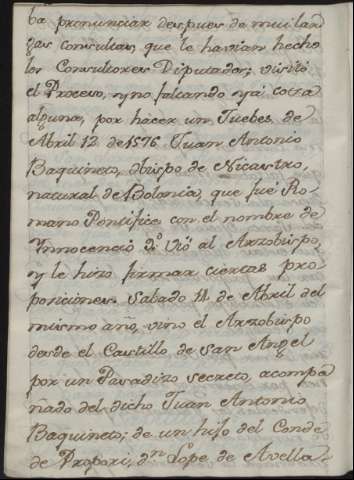 ba pronunciar despues de mui lar-
gas consultas, que le havian hecho
los Consultores Diputados; visitó
el Proceso, y no faltando ya cosa
alguna, por hacer un Juebes de
Abril 12 de 1576 Juan Antonio
Baquineto, obispo de Nicastro,
natural de Bolonia, que fué Ro-
mano Pontifice con el nombre de
Innocencio 9º vió al Arzobispo,
y le hizo firmar ciertas pro-
posiciones. Sabado 14 de Abril del
mismo año, vino el Arzobispo
desde el Castillo de San Angel
por un Pasadizo secreto, acompa
ñado del dicho Juan Antonio
Baquineto; de un hijo del Conde
de Propori, dn Lope de Avella